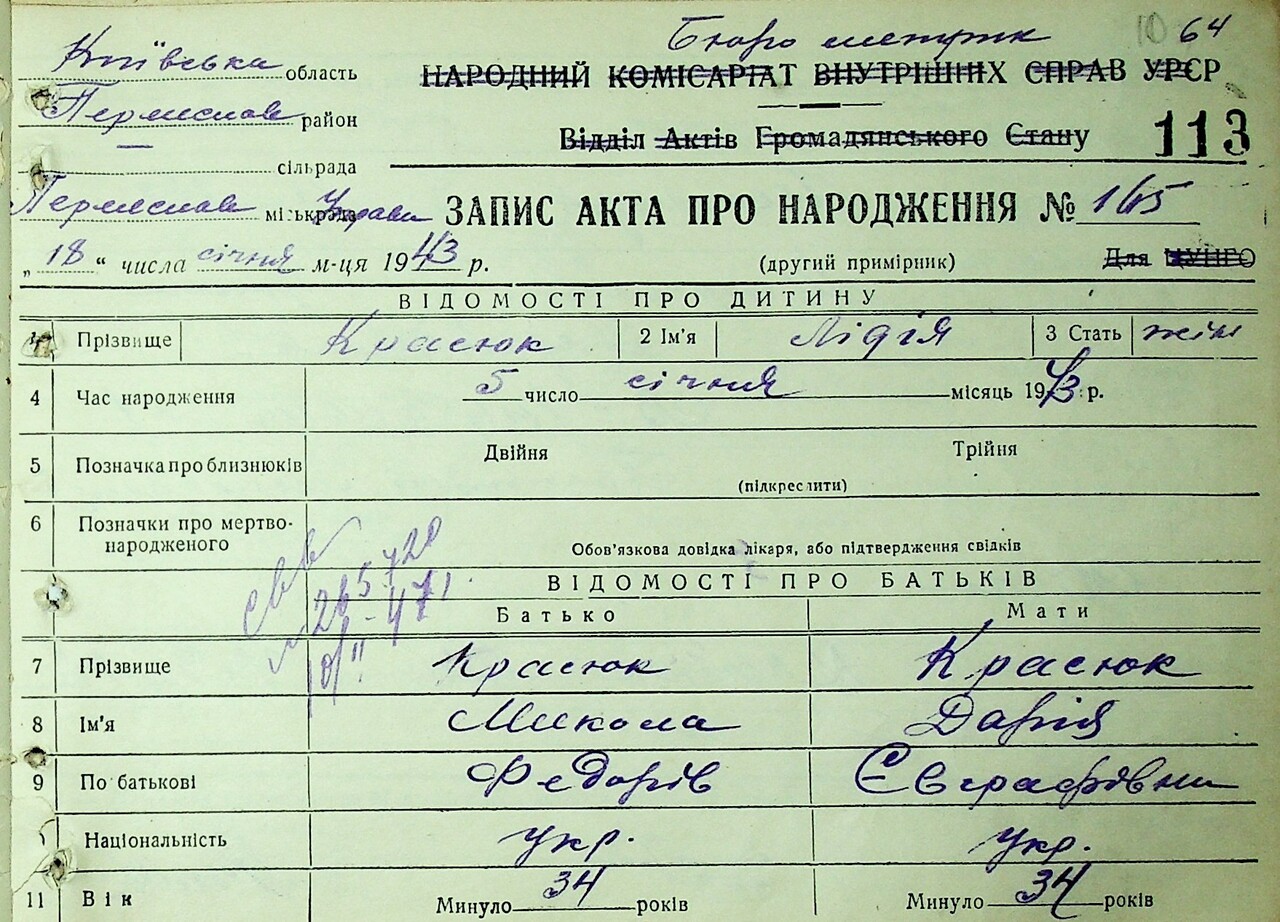 10 64
Київська область
Бюро метрик
НАРОДНИЙ КОМІСАРІАТ ВНУТРІШНІХ СПРАВ УРСР
Переяслав район
Відділ Актів Громадянського Стану
113
сільрада
Переяслав міськрада Управа
ЗАПИС АКТА ПРО НАРОДЖЕННЯ № 165
„18“ числа січня м-ця 1943 р.
(другий примірник)
Для ЦУНГО
ВІДОМОСТІ ПРО ДИТИНУ
1 Прізвище Красюк 2 Ім'я Лідія 3 Стать жін
4 Час народження 5 число січня місяць 1943 р.
5 Позначка про близнюків Двійня Трійня
(підкреслити)
6 Позначки про мертво-
народженого
Обов'язкова довідка лікаря, або підтвердження свідків
ВІДОМОСТІ ПРО БАТЬКІВ
Батько Мати
7 Прізвище Красюк Красюк
8 Ім'я Микола Дарія
9 По батькові Федорів Євграфівна
Національність укр. укр.
11 Вік Минуло 34 років Минуло 34 років